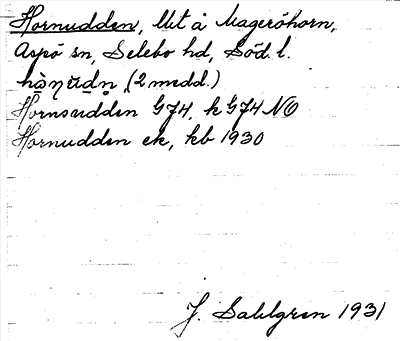 Hornudden, Utt å Mageröhorn,
Aspö sn, Selebo hd, Söd. l.
(2 medd.)
Hornsudden G74, k G74 NO
Hornudden ek, kb 1930
J. Sahlgren 1931